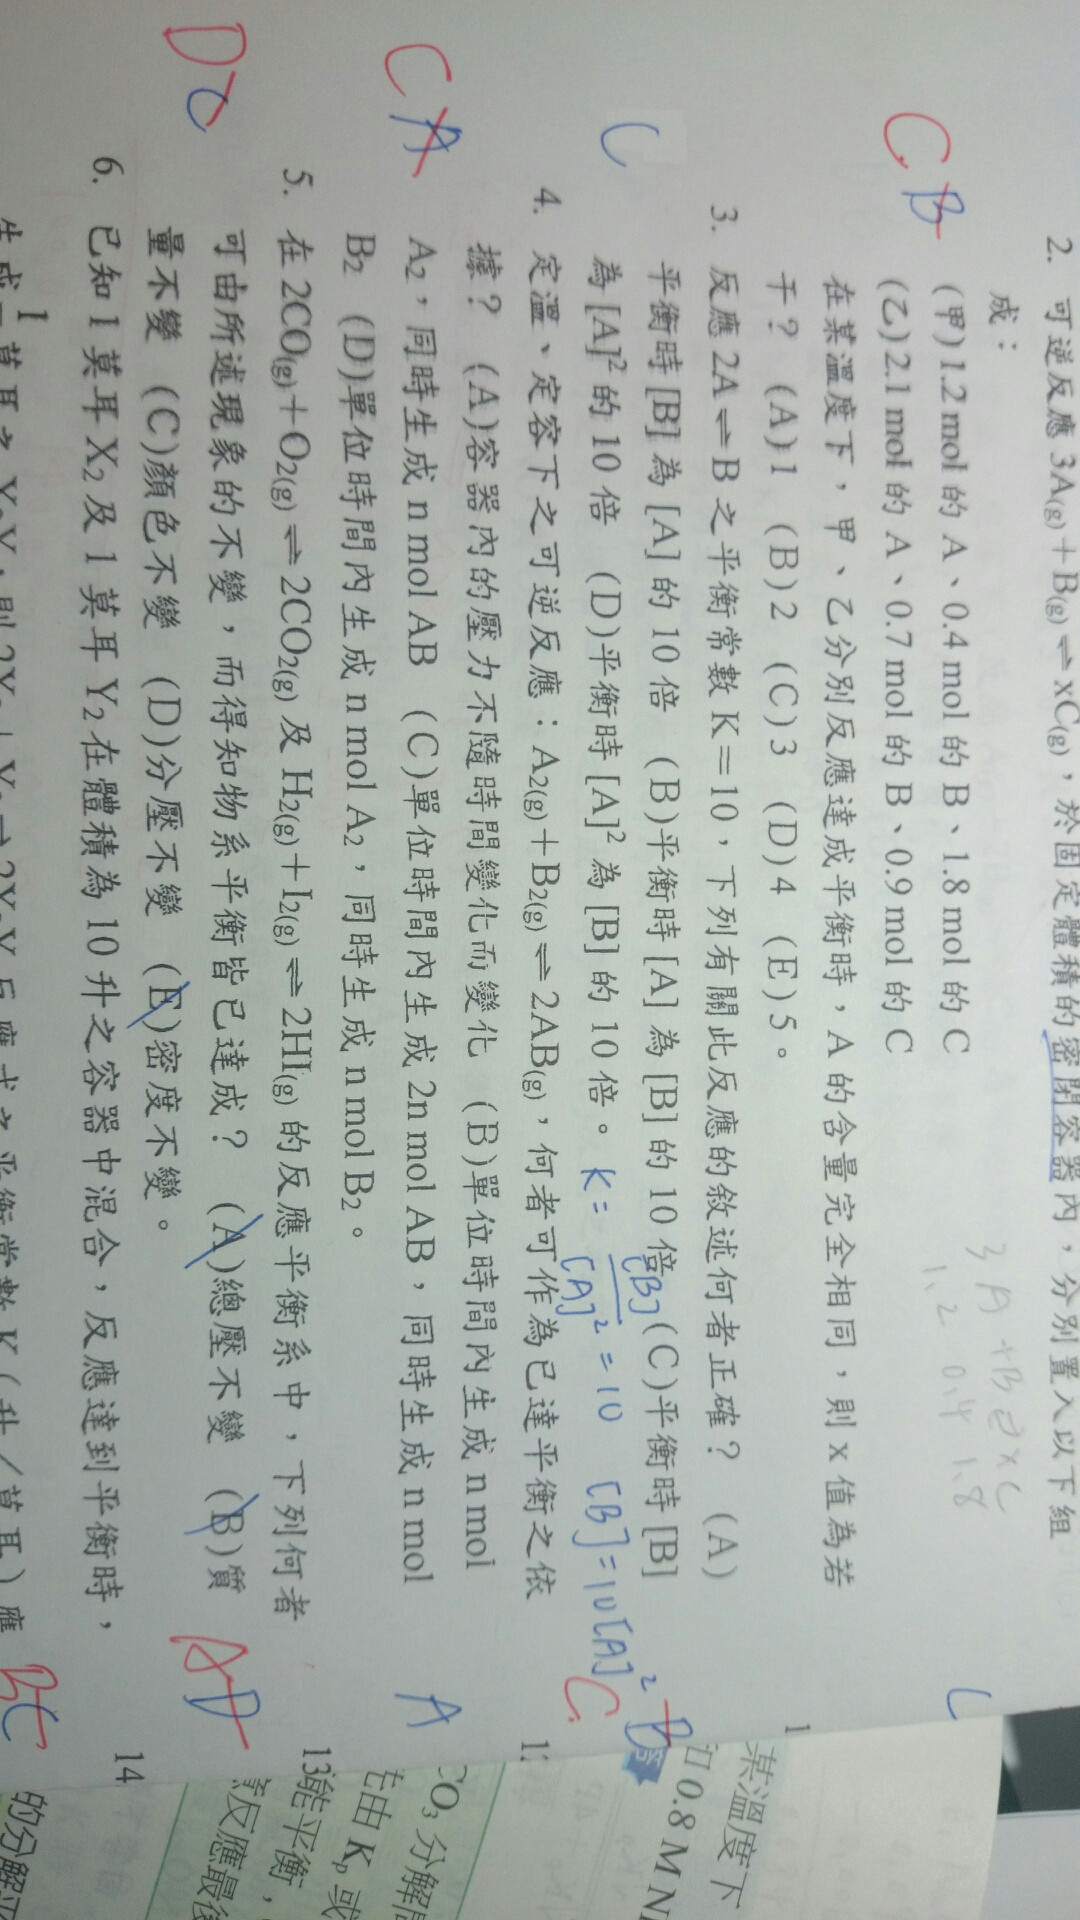 2. 可逆反應 3A(g)+B(g)⇌xC(g),於固定體積的密閉容器內,分別置入以下組
成:
(甲)1.2 mol 的 A、0.4 mol 的 B、1.8 mol 的 C
(乙)2.1 mol 的 A、0.7 mol 的 B、0.9 mol 的 C
在某溫度下,甲、乙分別反應達成平衡時,A 的含量完全相同,則 x 值為若
干? (A)1 (B)2 (C)3 (D)4 (E)5。
3A+B⇌xC
1.2 0.4 1.8
C B
3. 反應 2A⇌B 之平衡常數 K=10,下列有關此反應的敘述何者正確? (A)
平衡時 [B] 為 [A] 的 10 倍 (B)平衡時 [A] 為 [B] 的 10 倍 (C)平衡時 [B]
為 [A]² 的 10 倍 (D)平衡時 [A]² 為 [B] 的 10 倍。
K= [B]/[A]² =10 [B]=10[A]²
C
4. 定溫、定容下之可逆反應:A₂(g)+B₂(g)⇌2AB(g),何者可作為已達平衡之依
據? (A)容器內的壓力不隨時間變化而變化 (B)單位時間內生成 n mol
A₂,同時生成 n mol AB (C)單位時間內生成 2n mol AB,同時生成 n mol
B₂ (D)單位時間內生成 n mol A₂,同時生成 n mol B₂。
C A
5. 在 2CO(g)+O₂(g)⇌2CO₂(g) 及 H₂(g)+I₂(g)⇌2HI(g) 的反應平衡系中,下列何者
可由所述現象的不變,而得知物系平衡皆已達成? (A)總壓不變 (B)質
量不變 (C)顏色不變 (D)分壓不變 (E)密度不變。
D C
6. 已知 1 莫耳 X₂ 及 1 莫耳 Y₂ 在體積為 10 升之容器中混合,反應達到平衡時,
1
C
B
C
A
A D
C
1
13
14
某溫度下
0.8 M N
CO₃ 分解
由 Kp 或
能平衡,
反應最後
的分解